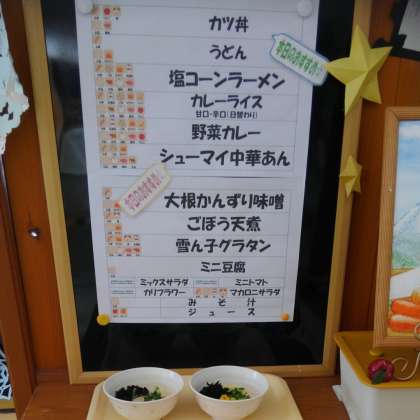 カツ丼
うどん
本日のおすすめ
塩コーンラーメン
カレーライス
甘口・辛口(日替わり)
野菜カレー
シューマイ中華あん
本日のおすすめ
大根かんずり味噌
ごぼう天煮
雪ん子グラタン
ミニ豆腐
ミックスサラダ ミニトマト
カリフラワー マカロニサラダ
みそ汁
ジュース